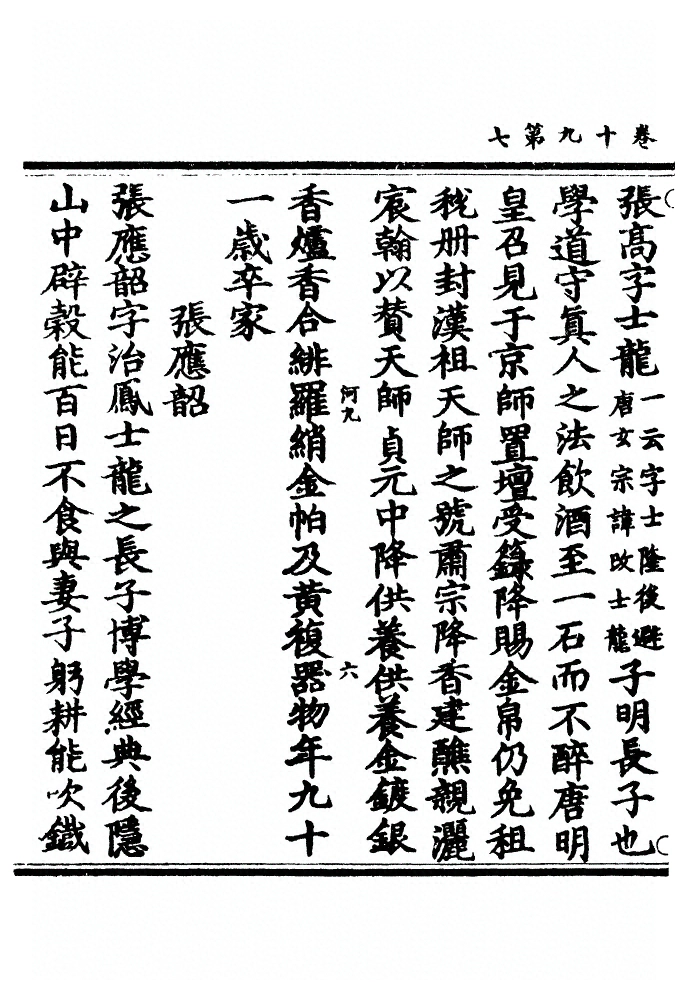 卷十九第七
張高字士龍一云字士隆後避唐玄宗諱改士龍子明長子也
學道守真人之法飲酒至一石而不醉唐明
皇召見于京師置壇受籙降賜金帛仍免租
稅冊封漢祖天師之號肅宗降香建醮親灑
宸翰以贊天師貞元中降供養供養金鍍銀
河九
六
香爐香合緋羅綃金帕及黃複器物年九十
一歲卒家
張應韶
張應韶字治鳳士龍之長子博學經典後隱
山中辟穀能百日不食與妻子躬耕能吹鐵